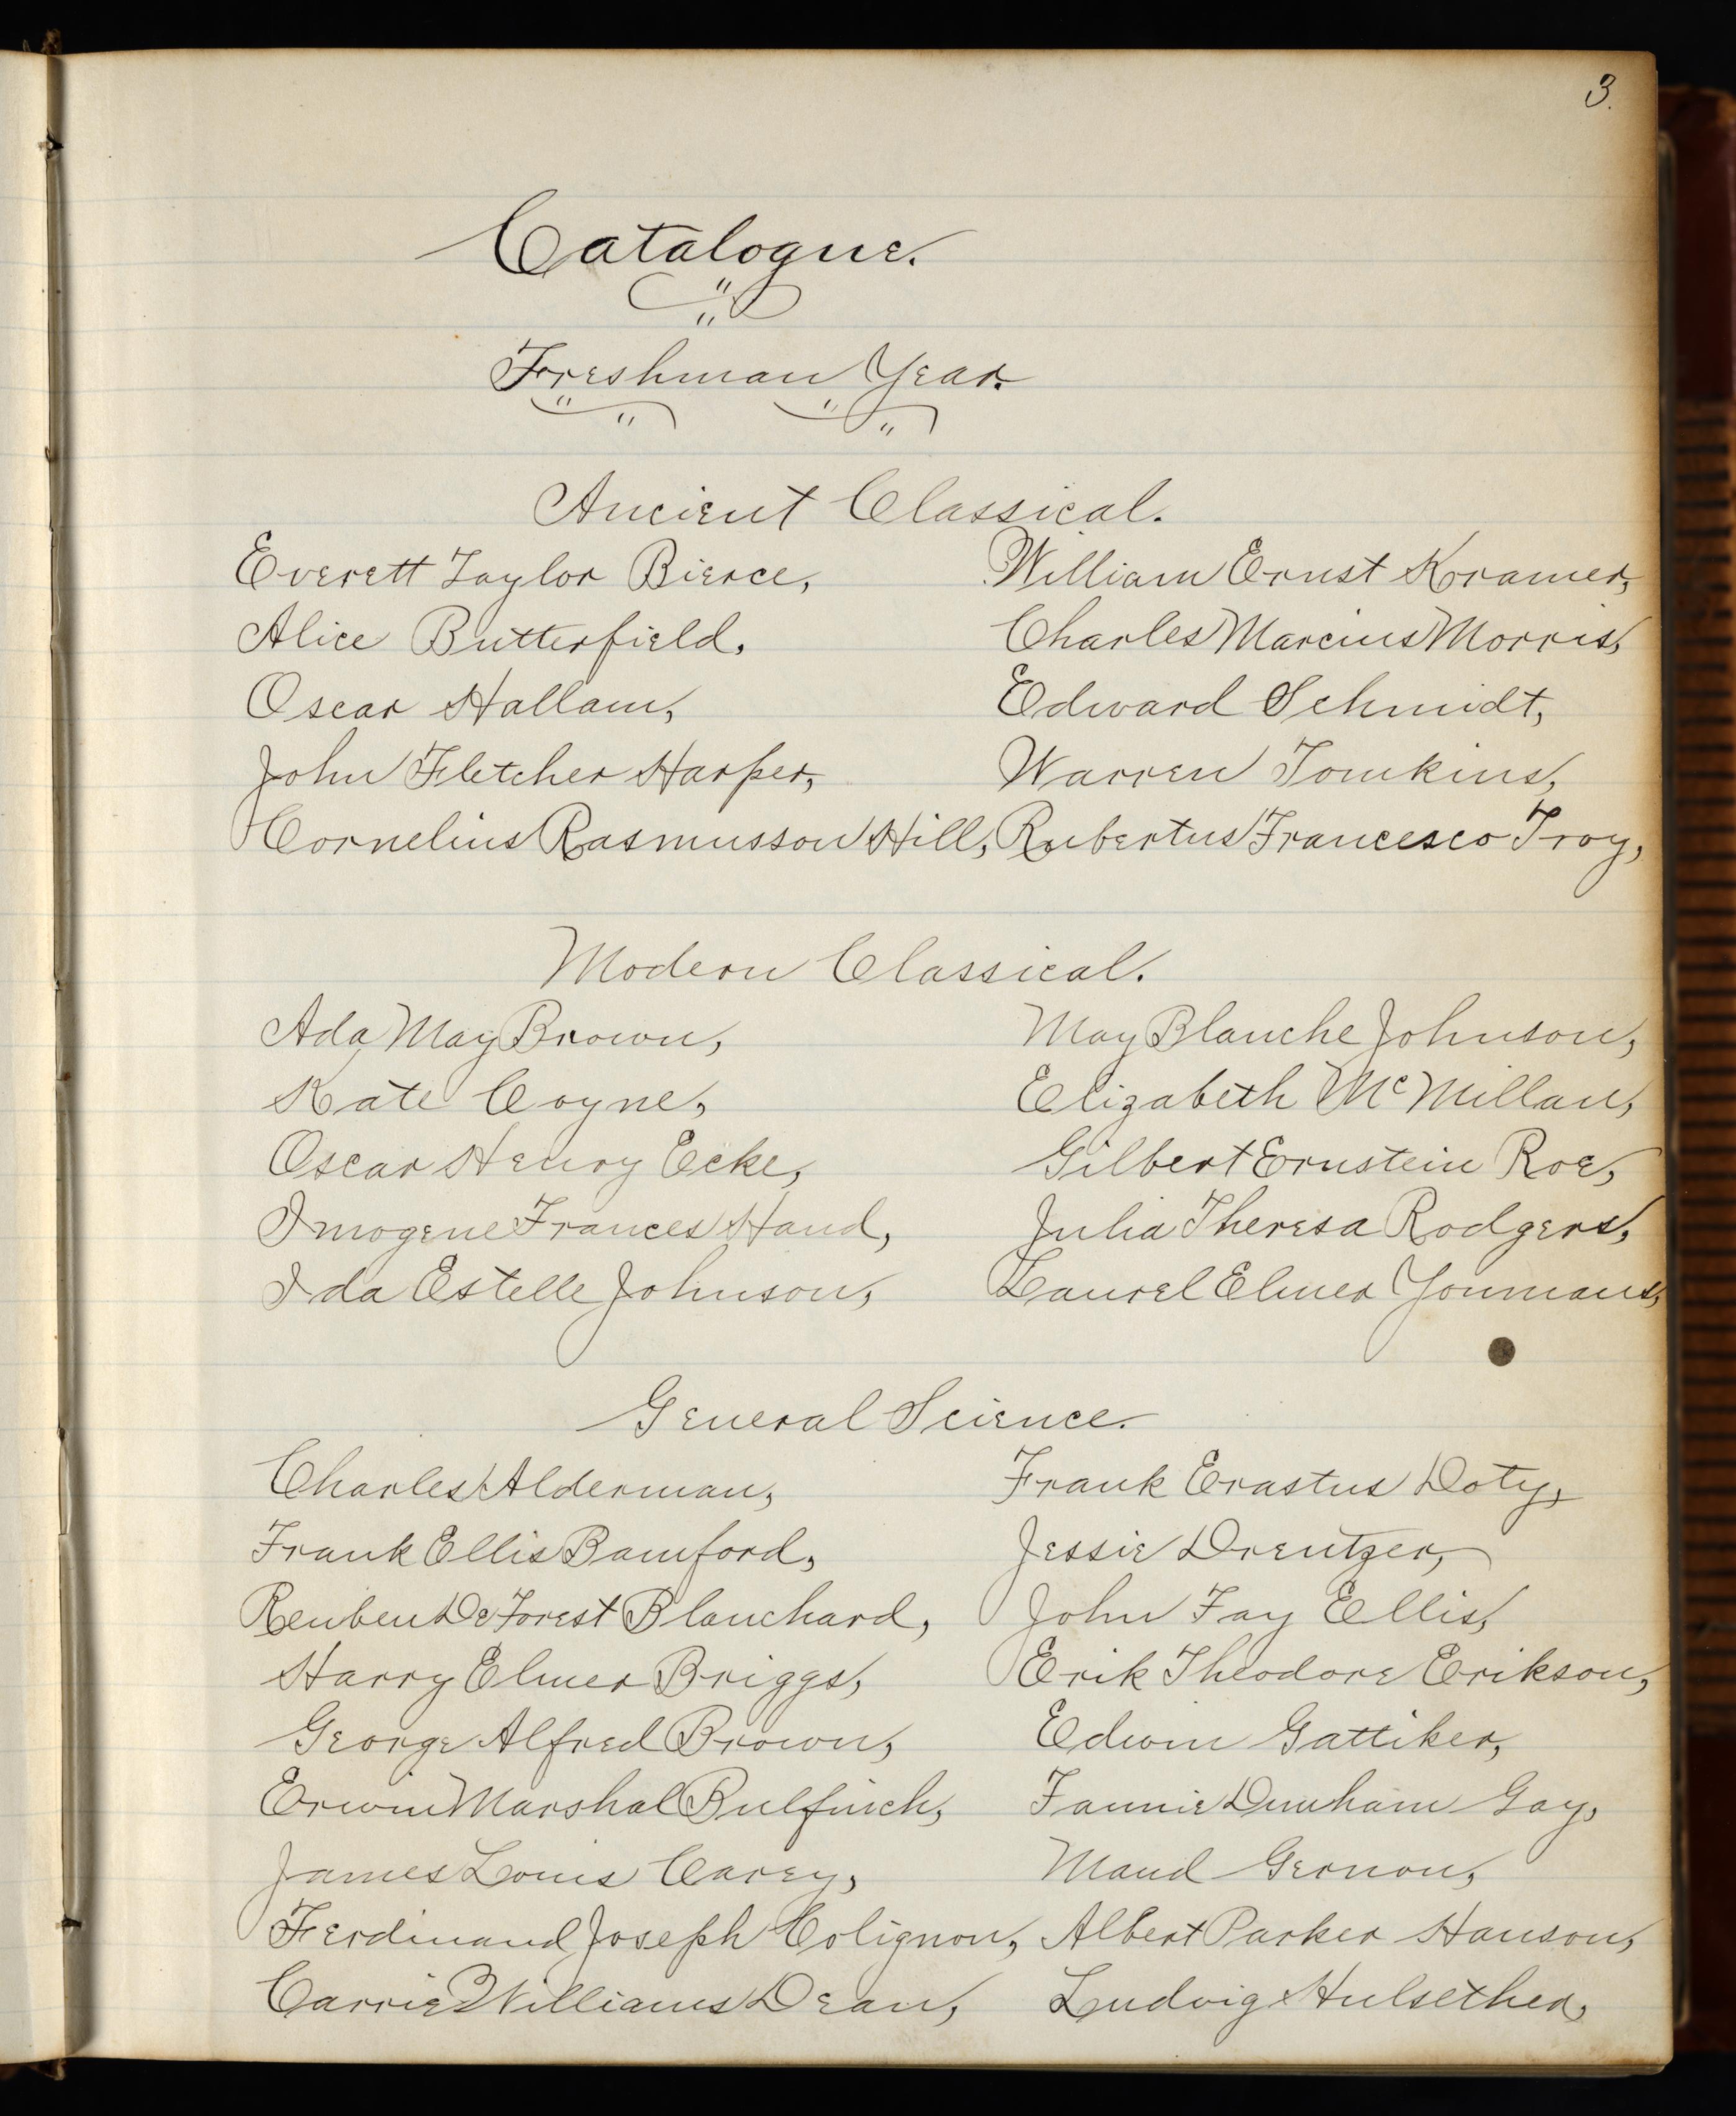 3.
Catalogue.
Freshman Year.
Ancient Classical.
Everett Taylor Bierce,
Alice Butterfield,
Oscar Hallam,
John Fletcher Harper,
Cornelius Rasmusson Hill,
William Ernst Kramer,
Charles Marcius Morris,
Edward Schmidt,
Warren Tomkins,
Rubertus Francesco Troy,
Modern Classical.
Ada May Brown,
Kate Coyne,
Oscar Henry Ecke,
Imogene Frances Hand,
Ida Estelle Johnson,
May Blanche Johnson,
Elizabeth McMillan,
Gilbert Ernstein Roe,
Julia Theresa Rodgers,
Laurel Elmer Youmans,
General Science.
Charles Alderman,
Frank Ellis Bamford,
Reuben De Forest Blanchard,
Harry Elmer Briggs,
George Alfred Brown,
Erwin Marshal Bulfinch,
James Louis Carey,
Ferdinand Joseph Colignon,
Carrie Williams Dean,
Frank Erastus Doty,
Jessie Drentzer,
John Fay Ellis,
Erik Theodore Erikson,
Edwin Gattiker,
Fannie Dunham Gay,
Maud Gernon,
Albert Parker Hanson,
Ludvig Hulsether,